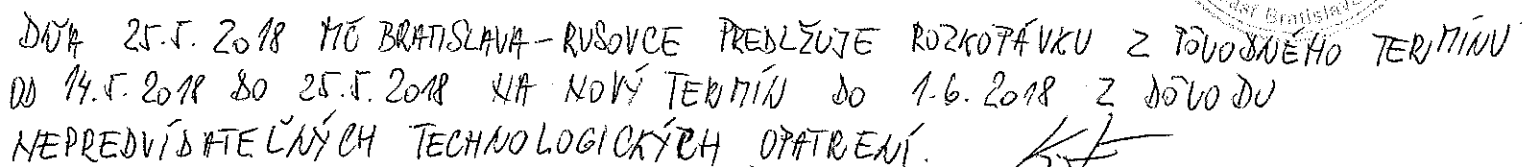 DŇA 25.5. 2018 MČ BRATISLAVA-RUSOVCE PREDLŽUJE ROZKOPÁVKU Z PÔVODNÉHO TERMÍNU
OD 14.5.2018 DO 25.5.2018 NA NOVÝ TERMÍN DO 1.6.2018 Z DÔVODU
NEPREDVÍDATEĽNÝCH TECHNOLOGICKÝCH OPATRENÍ.